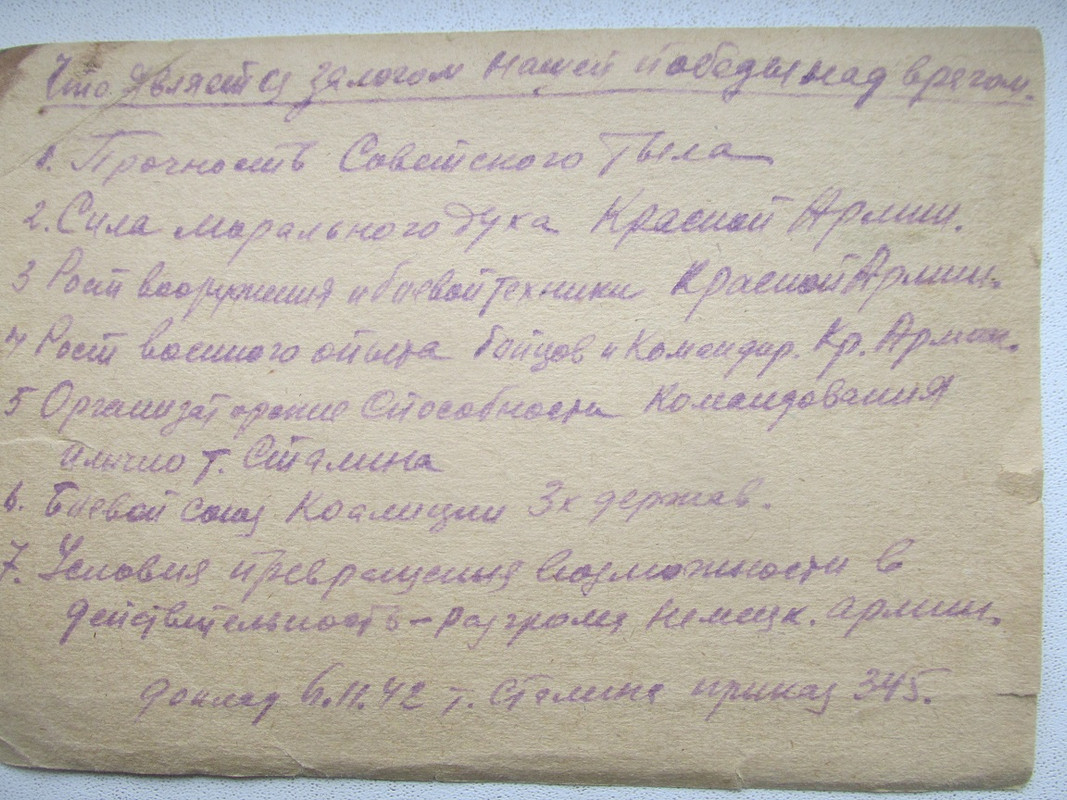 Что является залогом нашей победы над врагом.
1. Прочность Советского Тыла
2. Сила морального духа Красной Армии.
3 Рост вооружения и боевой техники Красной Армии.
4 Рост военного опыта бойцов и командир. Кр. Армии.
5 Организаторские способности командования
и лично т. Сталина
6. Боевой союз Коалиции 3х держав.
7. Условия превращения возможности в
действительность – разгрома немецк. армии.
доклад 6.11.42 т. Сталина приказ 345.